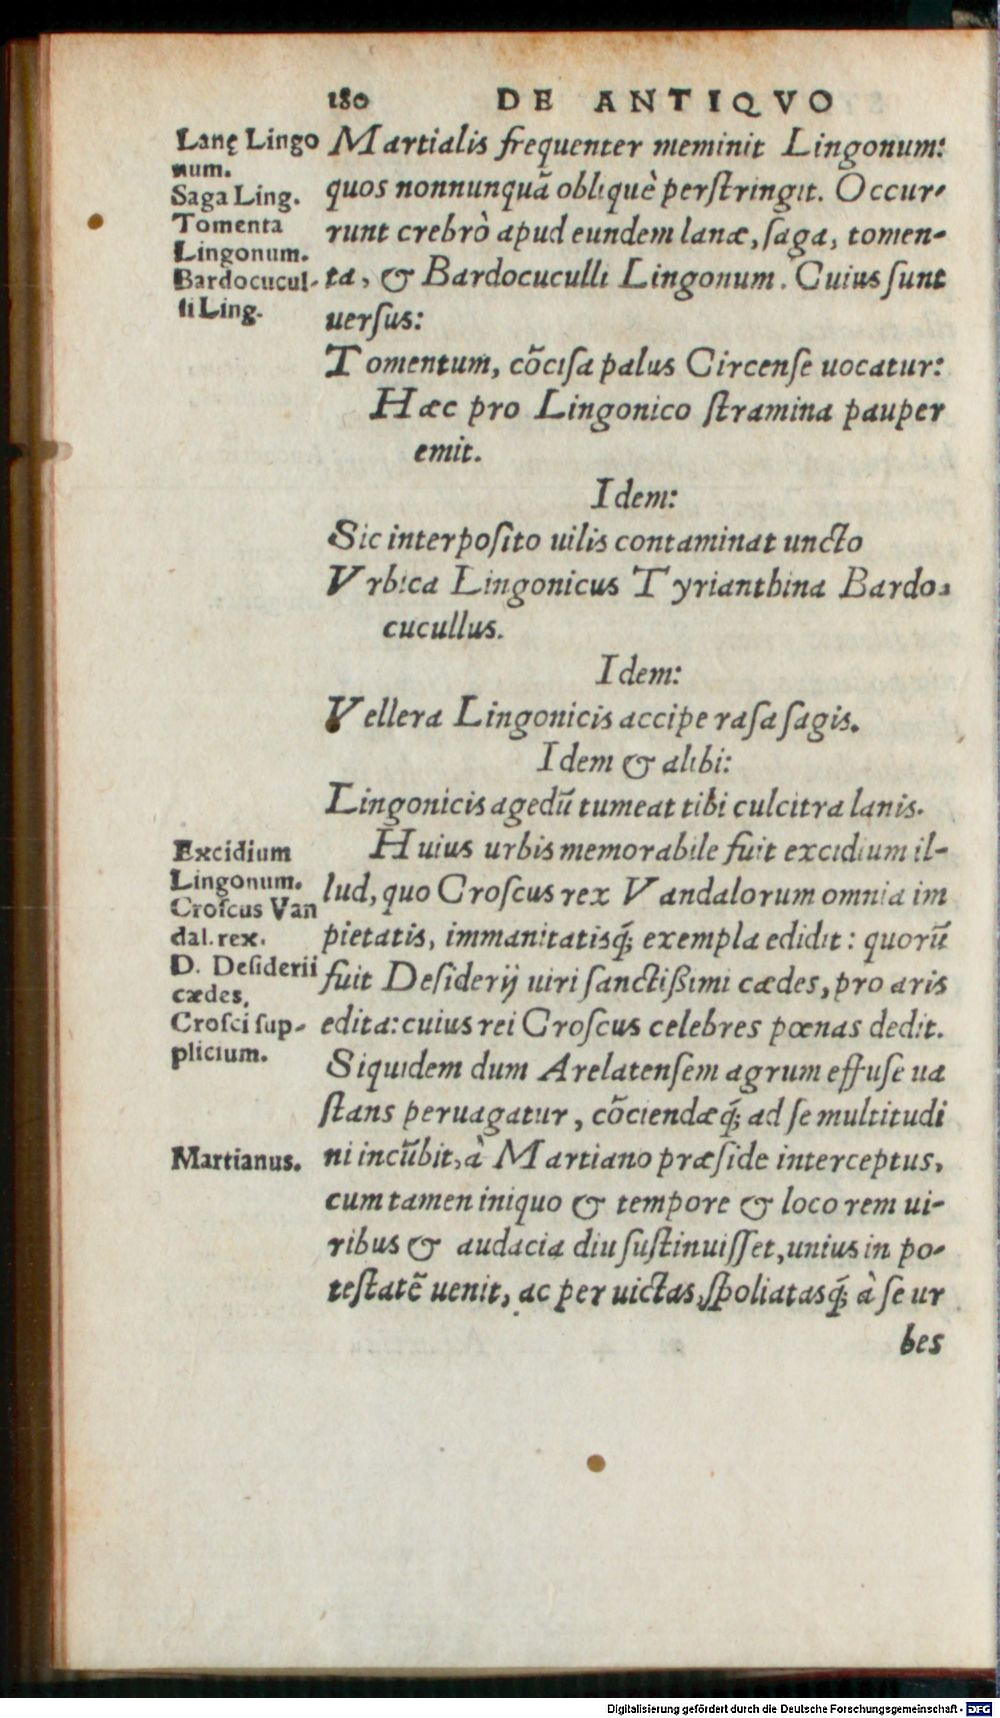 180 DE ANTIQVO
Lanę Lingo
num.
Saga Ling.
Tomenta
Lingonum.
Bardocucul-
li Ling.
Martialis frequenter meminit Lingonum:
quos nonnunquā obliquè perſtringit. Occur-
runt crebrò apud eundem lanæ, ſaga, tomen-
ta, & Bardocuculli Lingonum. Cuius ſunt
uerſus:
Tomentum, cōciſa palus Circenſe uocatur:
Hæc pro Lingonico ſtramina pauper
emit.
Idem:
Sic interpoſito uilis contaminat uncto
Vrbica Lingonicus Tyrianthina Bardo-
cucullus.
Idem:
Vellera Lingonicis accipe raſa ſagis.
Idem & alibi:
Lingonicis agedū tumeat tibi culcitra lanis.
Excidium
Lingonum.
Croſcus Van
dal. rex.
D. Deſiderii
cædes.
Croſci ſup-
plicium.
Huius urbis memorabile fuit excidium il-
lud, quo Croſcus rex Vandalorum omnia im
pietatis, immanitatisq́; exempla edidit: quorū
fuit Deſiderij uiri ſanctißimi cædes, pro aris
edita: cuius rei Croſcus celebres pœnas dedit.
Siquidem dum Arelatenſem agrum effuſe ua
ſtans peruagatur, cōciendæq́; ad ſe multitudi
Martianus.
ni incūbit, à Martiano præſide interceptus,
cum tamen iniquo & tempore & loco rem ui-
ribus & audacia diu ſuſtinuiſſet, unius in po-
teſtatē uenit, ac per uictas, ſpoliatasq́; à ſe ur
bes
Digitalisierung gefördert durch die Deutsche Forschungsgemeinschaft - DFG